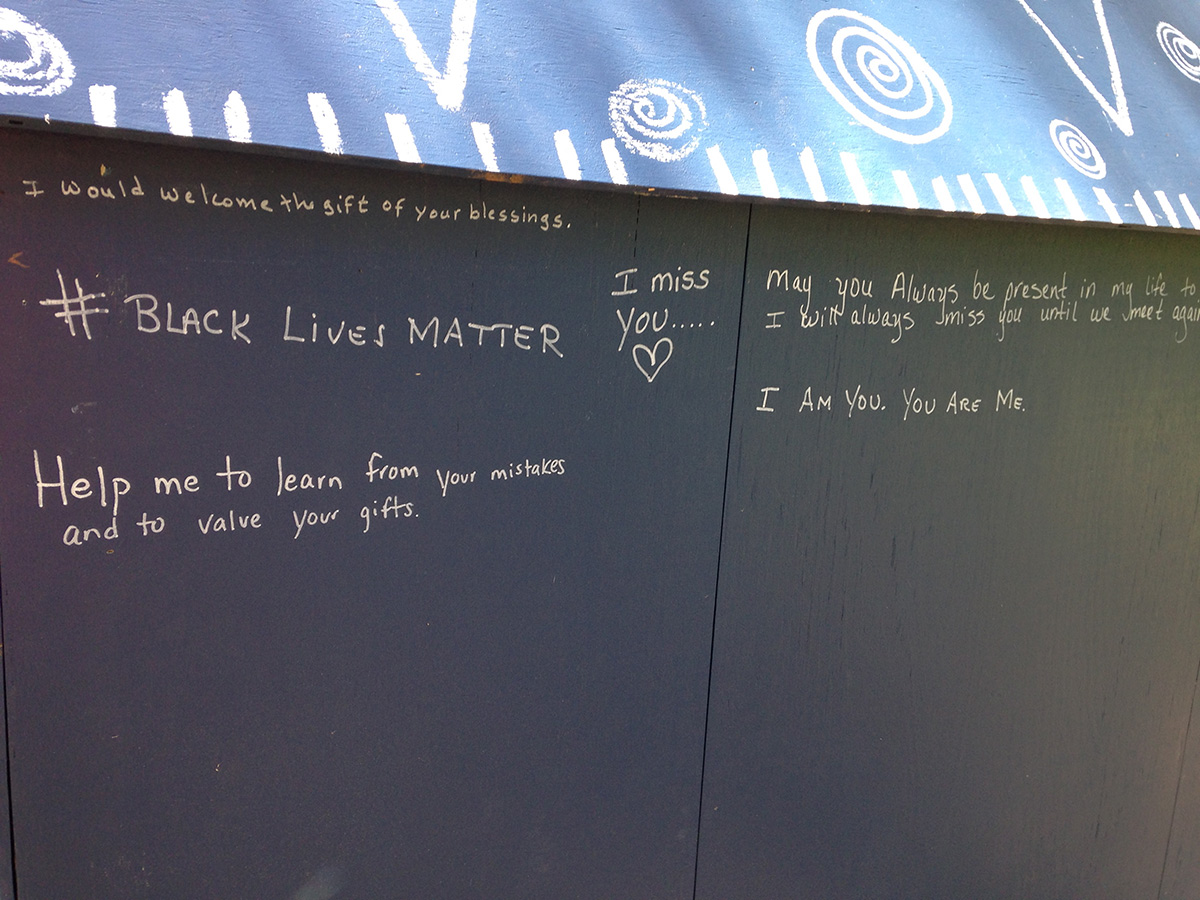 I would welcome the gift of your blessings.
# BLACK LIVES MATTER
I miss
you.....
May you Always be present in my life to
I will always miss you until we meet again
I AM YOU. YOU ARE ME.
Help me to learn from your mistakes
and to value your gifts.